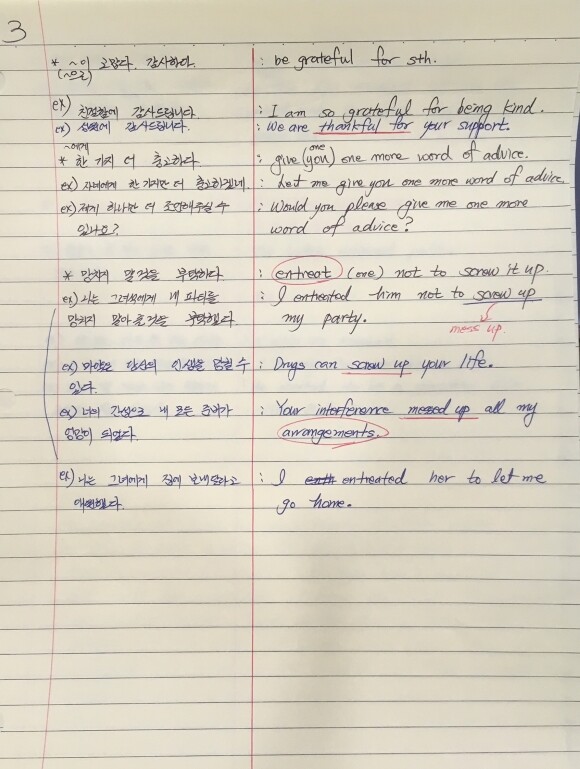 3
* ~이 고맙다. 감사하다. : be grateful for sth.
(~으로)
ex) 친절함에 감사드립니다. : I am so grateful for being kind.
ex) 성원에 감사드립니다. : We are thankful for your support.
~에게 one
* 한 가지 더 충고하다. : give (you) one more word of advice.
ex) 자네에게 한 가지만 더 충고하겠네. : Let me give you one more word of advice.
ex) 저게 하나만 더 조언해주실 수 : Would you please give me one more
있나요? word of advice?
* 망치지 말 것을 부탁하다. : entreat (one) not to screw it up.
ex) 나는 그녀석에게 내 파티를 : I entreated him not to screw up
망치지 말아 줄 것을 부탁했다. my party. mess up.
ex) 마약은 당신의 인생을 망칠 수 : Drugs can screw up your life.
있다.
ex) 너의 간섭으로 내 모든 준비가 : Your interference messed up all my
엉망이 되었다. arrangements.
ex) 나는 그녀에게 집에 보내달라고 : I enth entreated her to let me
애원했다. go home.